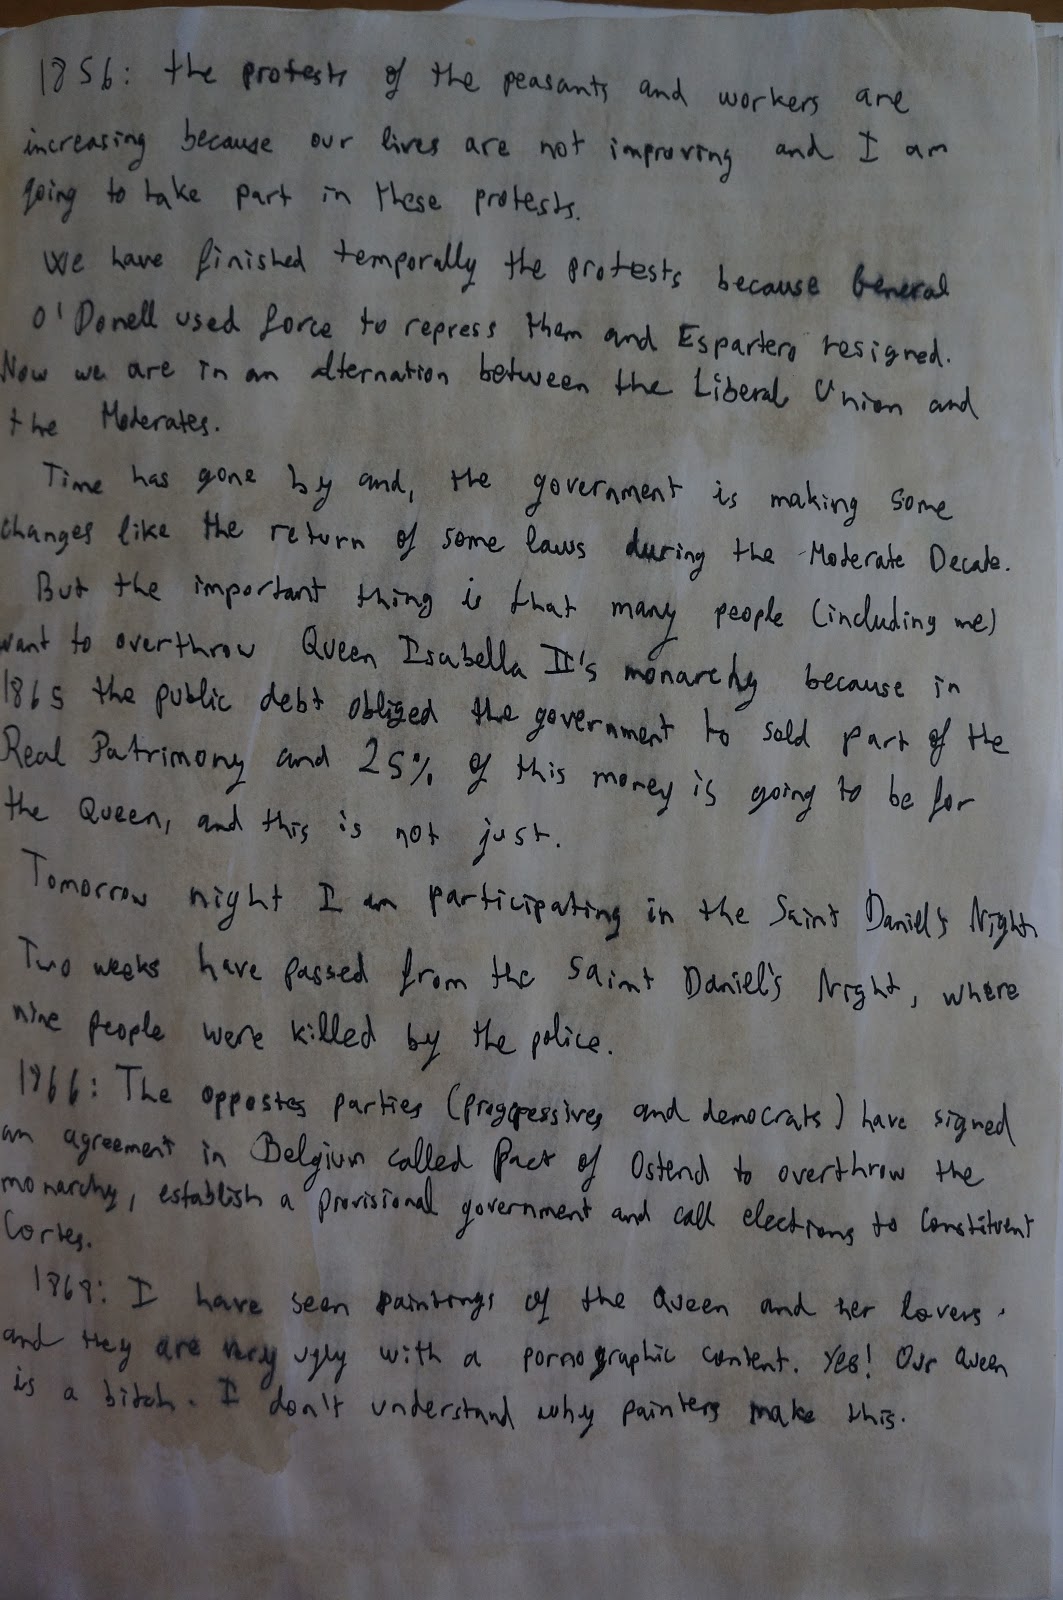 1856: the protests of the peasants and workers are
increasing because our lives are not improving and I am
going to take part in these protests.
We have finished temporally the protests because General
O'Donell used force to repress them and Espartero resigned.
Now we are in an alternation between the Liberal Union and
the Moderates.
Time has gone by and, the government is making some
changes like the return of some laws during the Moderate Decade.
But the important thing is that many people (including me)
want to overthrow Queen Isabella II's monarchy because in
1865 the public debt obliged the government to sold part of the
Real Patrimony and 25% of this money is going to be for
the Queen, and this is not just.
Tomorrow night I am participating in the Saint Daniel's Night
Two weeks have passed from the Saint Daniel's Night, where
nine people were killed by the police.
1866: The opposites parties (progressives and democrats) have signed
an agreement in Belgium called Pact of Ostend to overthrow the
monarchy, establish a provisional government and call elections to Constituent
Cortes.
1868: I have seen paintings of the Queen and her lovers.
and they are very ugly with a pornographic content. Yes! Our Queen
is a bitch. I don't understand why painters make this.